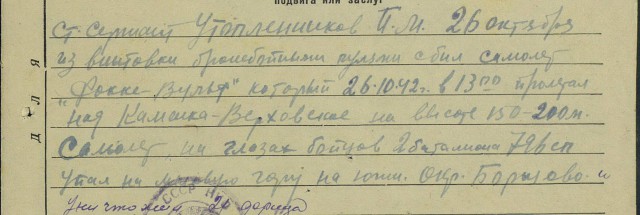 подвига или заслуг
ДЛЯ
Ст. сержант Утопленников П.М. 26 октября
из винтовки бронебойными пулями сбил самолет
"Фокке-Вульф" который 26.10.42г. в 13 00 пролетал
над Каменка-Верховское на высоте 150-200 м.
Самолет на глазах бойцов 2 батальона 796 сп
упал на гору на южн. окр. и
уничтожен.